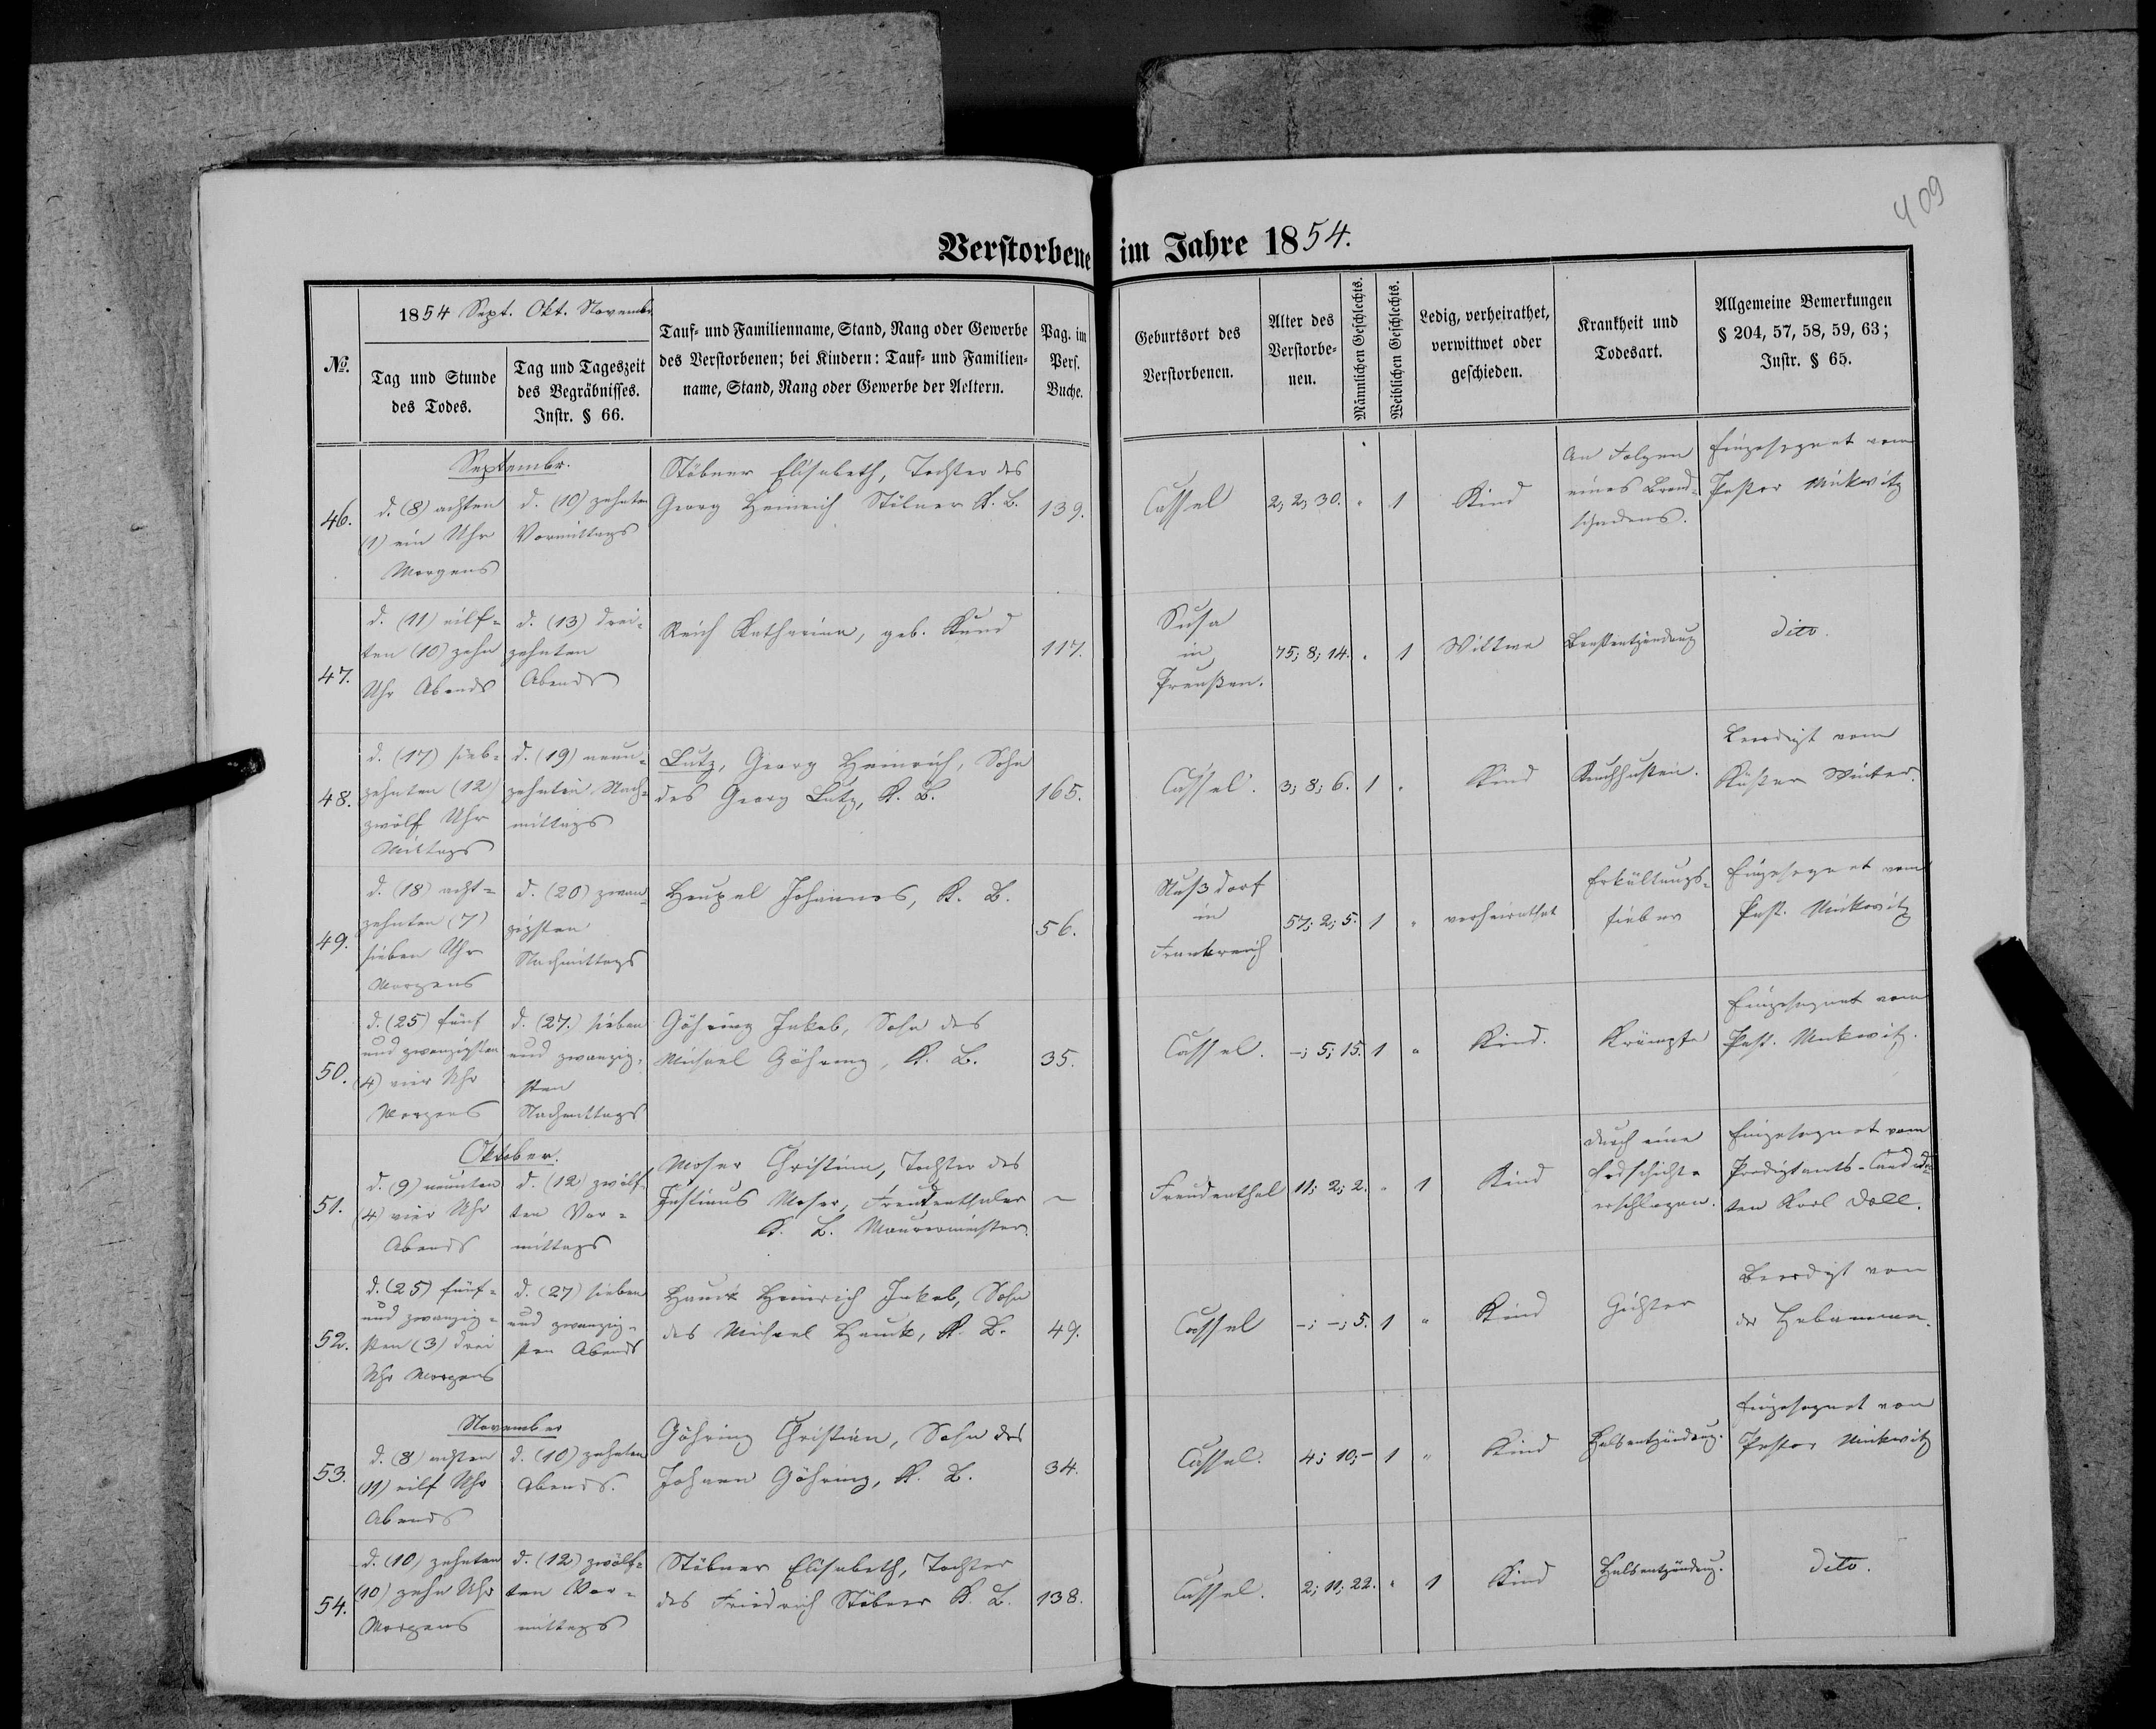 409
Verstorbene im Jahre 1854.
№.
1854 Sept. Okt. Novembr.
Tag und Stunde
des Todes.
Tag und Tageszeit
des Begräbnisses.
Instr. § 66.
Tauf- und Familienname, Stand, Rang oder Gewerbe
des Verstorbenen; bei Kindern: Tauf- und Familien-
name, Stand, Rang oder Gewerbe der Aeltern.
Pag. im
Pers.
Buche.
Geburtsort des
Verstorbenen.
Alter des
Verstorbe-
nen.
Männlichen Geschlechts.
Weiblichen Geschlechts.
Ledig, verheirathet,
verwittwet oder
geschieden.
Krankheit und
Todesart.
Allgemeine Bemerkungen
§ 204, 57, 58, 59, 63;
Instr. § 65.
Septembr.
46.
d. (8) achten
(1) ein Uhr
Morgens
d. (10) zehnten
Vormittags
Stöbner Elisabeth, Tochter des
Georg Heinrich Stöbner K. B.
139.
Cassel
2; 2; 30.
"
1
Kind
An Folgen
eines Brand-
schadens.
Eingesegnet vom
Pastor Minkwitz
47.
d. (11) eilf-
ten (10) zehn
Uhr Abends
d. (13) drei-
zehnten
Abends
Reich Katharina, geb. Kund
117.
Susa
in
Preußen.
75; 8; 14.
"
1
Wittwe
Brustentzündung
dito.
48.
d. (17) sieb-
zehnten (12)
zwölf Uhr
Mittags
d. (19) neun-
zehnten Nach-
mittags
Lutz, Georg Heinrich, Sohn
des Georg Lutz, K. B.
165.
Cassel.
3; 8; 6.
1
"
Kind
Keuchhusten.
Beerdigt vom
Küster Winter.
49.
d. (18) acht-
zehnten (7)
sieben Uhr
Morgens
d. (20) zwan-
zigsten
Nachmittags
Heupel Johannes, K. B.
56.
Nußdorf
in
Frankreich
57; 2; 5.
1
"
verheirathet
Erkältungs-
fieber
Eingesegnet vom
Past. Minkwitz
50.
d. (25) fünf
und zwanzigsten
(4) vier Uhr
Morgens
d. (27.) sieben
und zwanzig-
sten
Nachmittags
Göhring Jakob, Sohn des
Michael Göhring, K. B.
35.
Cassel.
-; 5; 15.
1
"
Kind.
Krämpfe
Eingesegnet vom
Past. Minkwitz.
Oktober.
51.
d. (9) neunten
(4) vier Uhr
Abends
d. (12) zwölf-
ten Vor-
mittags
Moser Christina, Tochter des
Justinus Moser, Freudenthaler
K. B. Maurermeister.
~
Freudenthal
11; 2; 2.
"
1
Kind
durch eine
Erdschichte
erschlagen.
Eingesegnet vom
Predigtamts-Candida-
ten Karl Doll.
52.
d. (25) fünf-
und zwanzig-
sten (3) drei
Uhr Morgens
d. (27) sieben
und zwanzig-
sten Abends
Hauck Heinrich Jakob, Sohn
des Michael Hauck, K. B.
49.
Cassel
-; -; 5.
1
"
Kind
Gichter
Beerdigt von
der Hebamme.
November
53.
d. (8) achten
(11) eilf Uhr
Abends
d. (10) zehnten
Abends.
Göhring Christian, Sohn des
Johann Göhring, K. B.
34.
Cassel.
4; 10; -
1
"
Kind
Halsentzündung.
Eingesegnet von
Pastor Minkwitz
54.
d. (10) zehnten
(10) zehn Uhr
Morgens
d. (12) zwölf-
ten Vor-
mittags
Stöbner Elisabeth, Tochter
des Friedrich Stöbner K. B.
138.
Cassel.
2; 11; 22.
"
1
Kind
Halsentzündung.
dito.